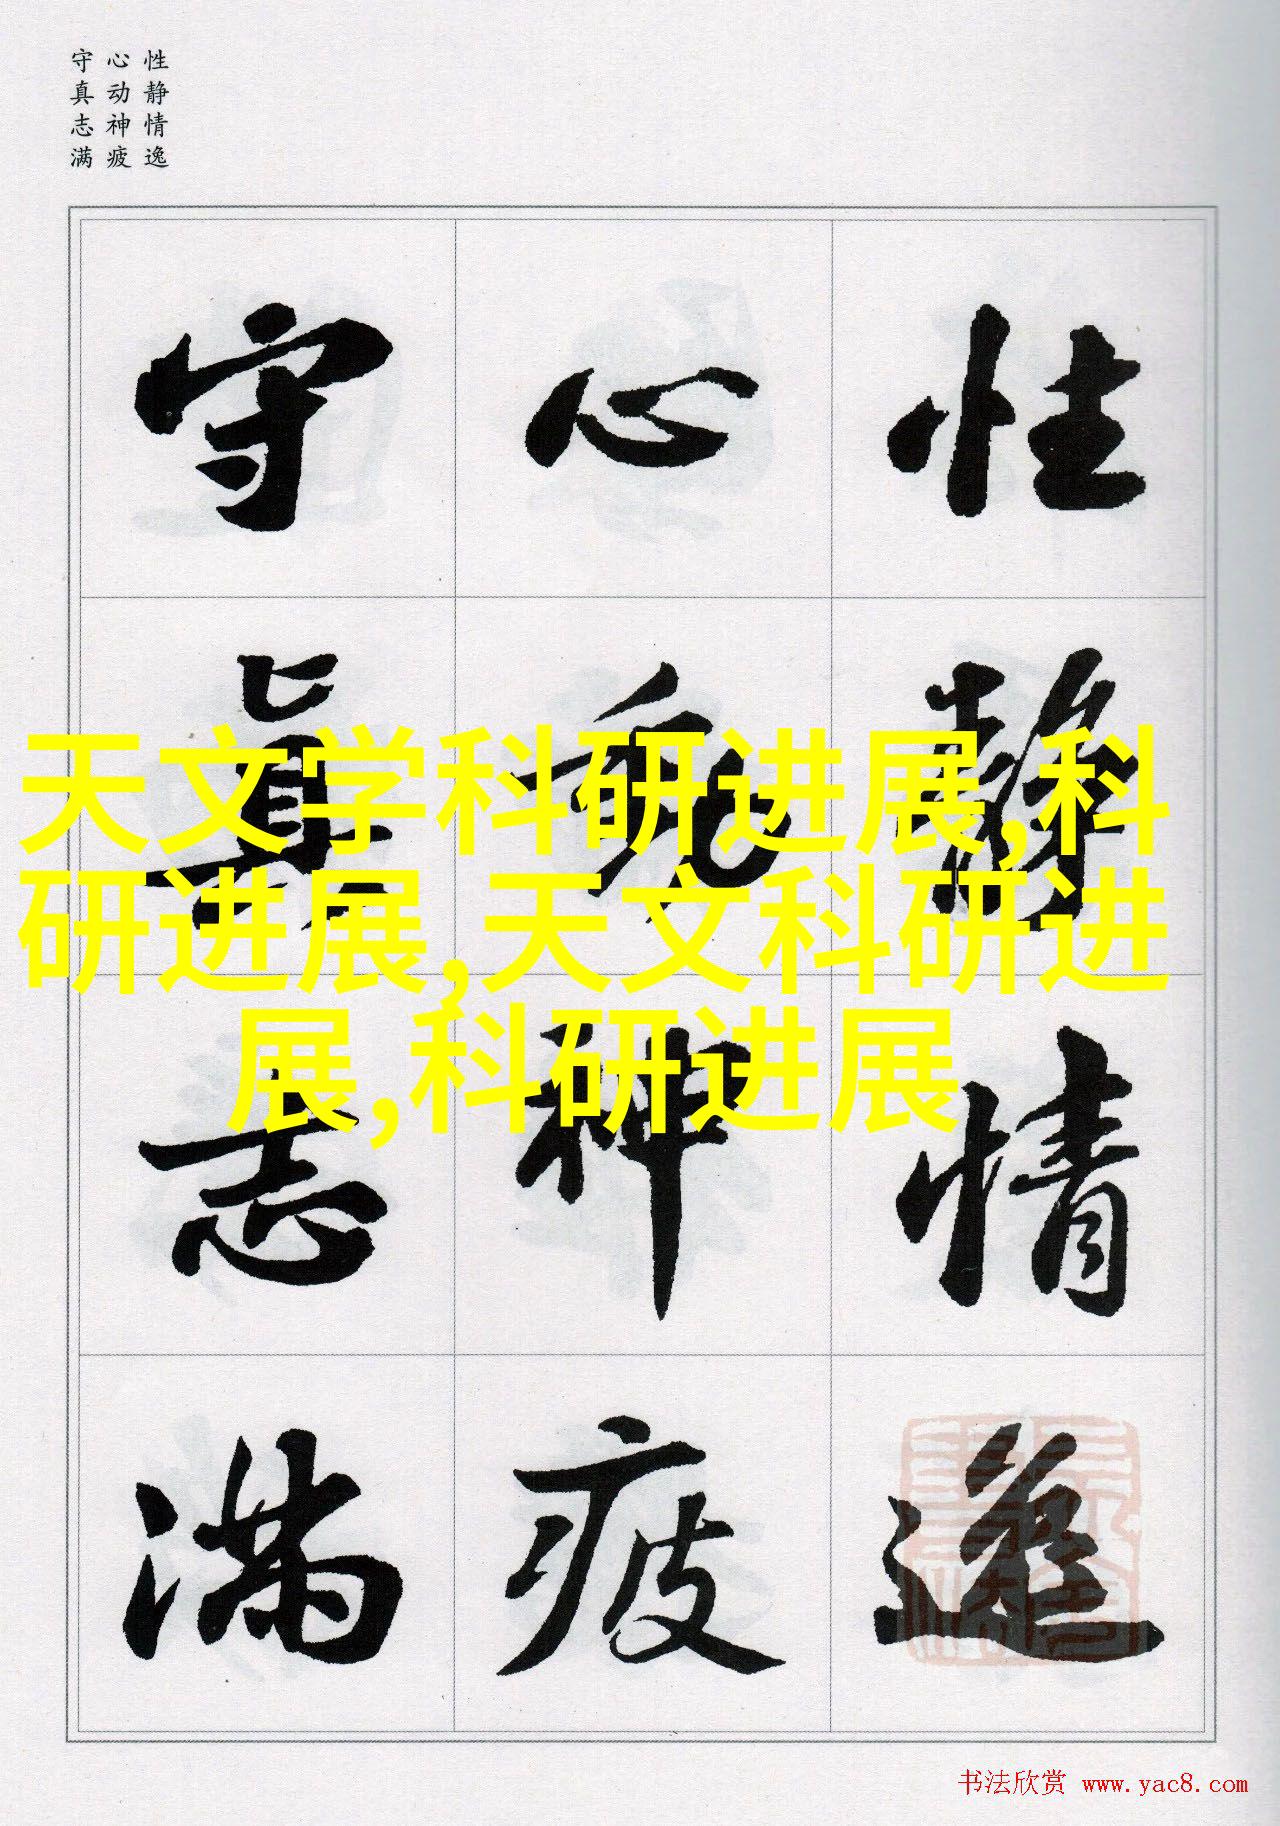 性静情逸
心动神疲
守真志满
性静情逸
心动神疲
守真志满
天文学科研进展,科
研进展,天文科研进
展,科研进展
书法欣赏 www.yac8.com